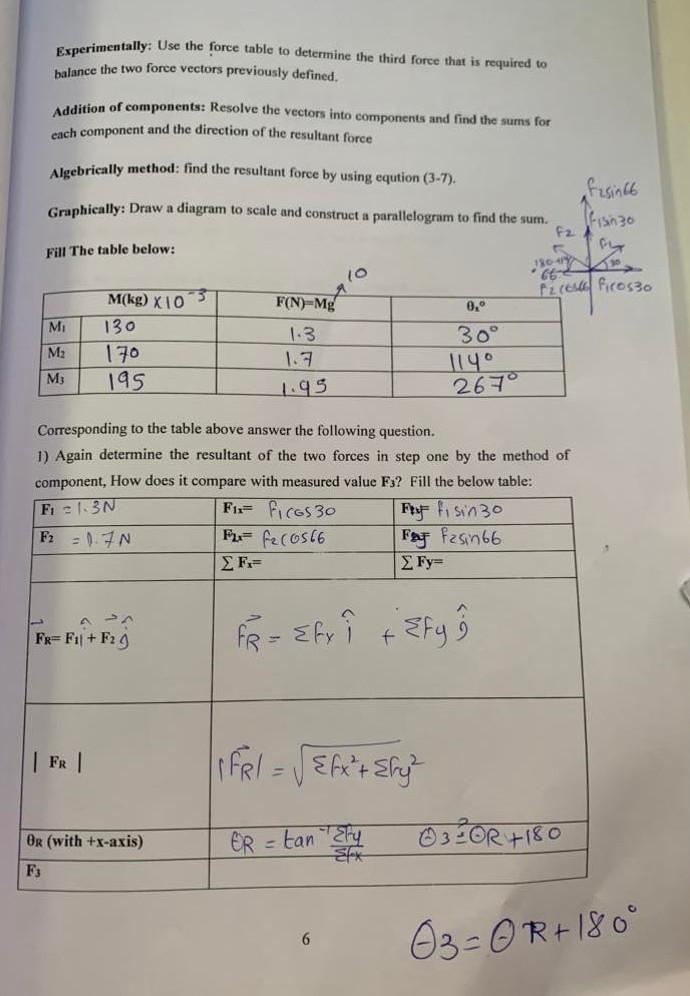 Experimentally: Use the force table to determine the third force that is required to
balance the two force vectors previously defined.
Addition of components: Resolve the vectors into components and find the sums for
each component and the direction of the resultant force
Algebrically method: find the resultant force by using eqution (3-7).
Graphically: Draw a diagram to scale and construct a parallelogram to find the sum.
F2sin66
F1sin30
F2
F1
30
180-114
66
F2cos66 F1cos30
Fill The table below:
10
M(kg) x10⁻³ F(N)=Mg θ,°
M1 130 1.3 30°
M2 170 1.7 114°
M3 195 1.95 267°
Corresponding to the table above answer the following question.
1) Again determine the resultant of the two forces in step one by the method of
component, How does it compare with measured value F3? Fill the below table:
F1 = 1.3N F1x= F1cos30 F1y= F1sin30
F2 = 1.7N F2x= F2cos66 F2y= F2sin66
∑ Fx= ∑ Fy=
FR= F1i + F2j FR = ΣFx i + ΣFy j
| FR | |FR| = √ΣFx²+ΣFy²
θR (with +x-axis) θR = tan⁻¹ ΣFy/ΣFx θ3 = θR+180
F3
6
θ3 = θR+180°